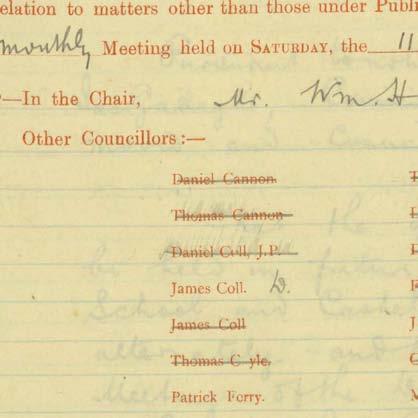 elation to matters other than those under Publi
monthly Meeting held on SATURDAY, the 11
—In the Chair, Mr. Wm. H
Other Councillors:—
Daniel Cannon.
Thomas Cannon
Daniel Coll, J.P.
James Coll. D.
James Coll
Thomas C yle.
Patrick Ferry.